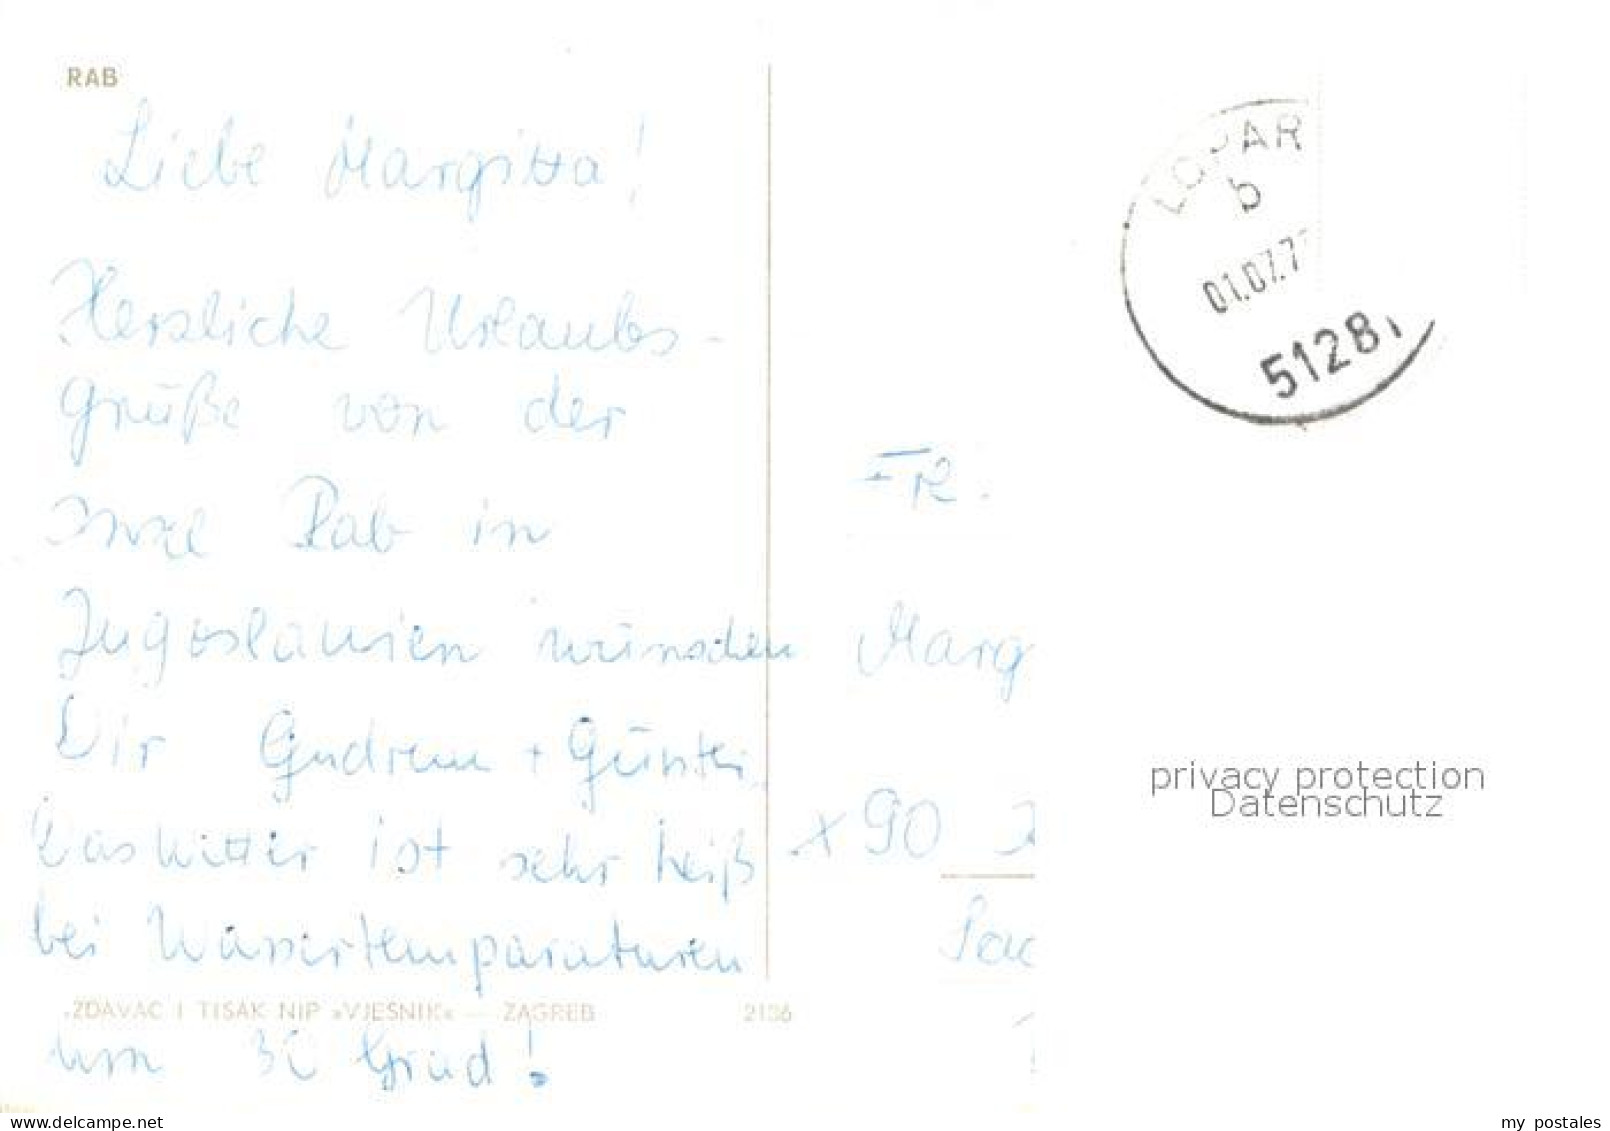 RAB
Liebe Margitta!
Herzliche Urlaubs-
grüße von der
Insel Rab in
Jugoslawien wünschen
Dir Gudrun + Günter.
Das Wetter ist sehr heiß
bei Wassertemparaturen
um 30 Grad!
ZDAVAC I TISAK NIP »VJESNIK« — ZAGREB 2136
LOPAR
b
01.07.7
51281
FR.
Marg
x 90
privacy protection
Datenschutz
delcampe.net
my postales